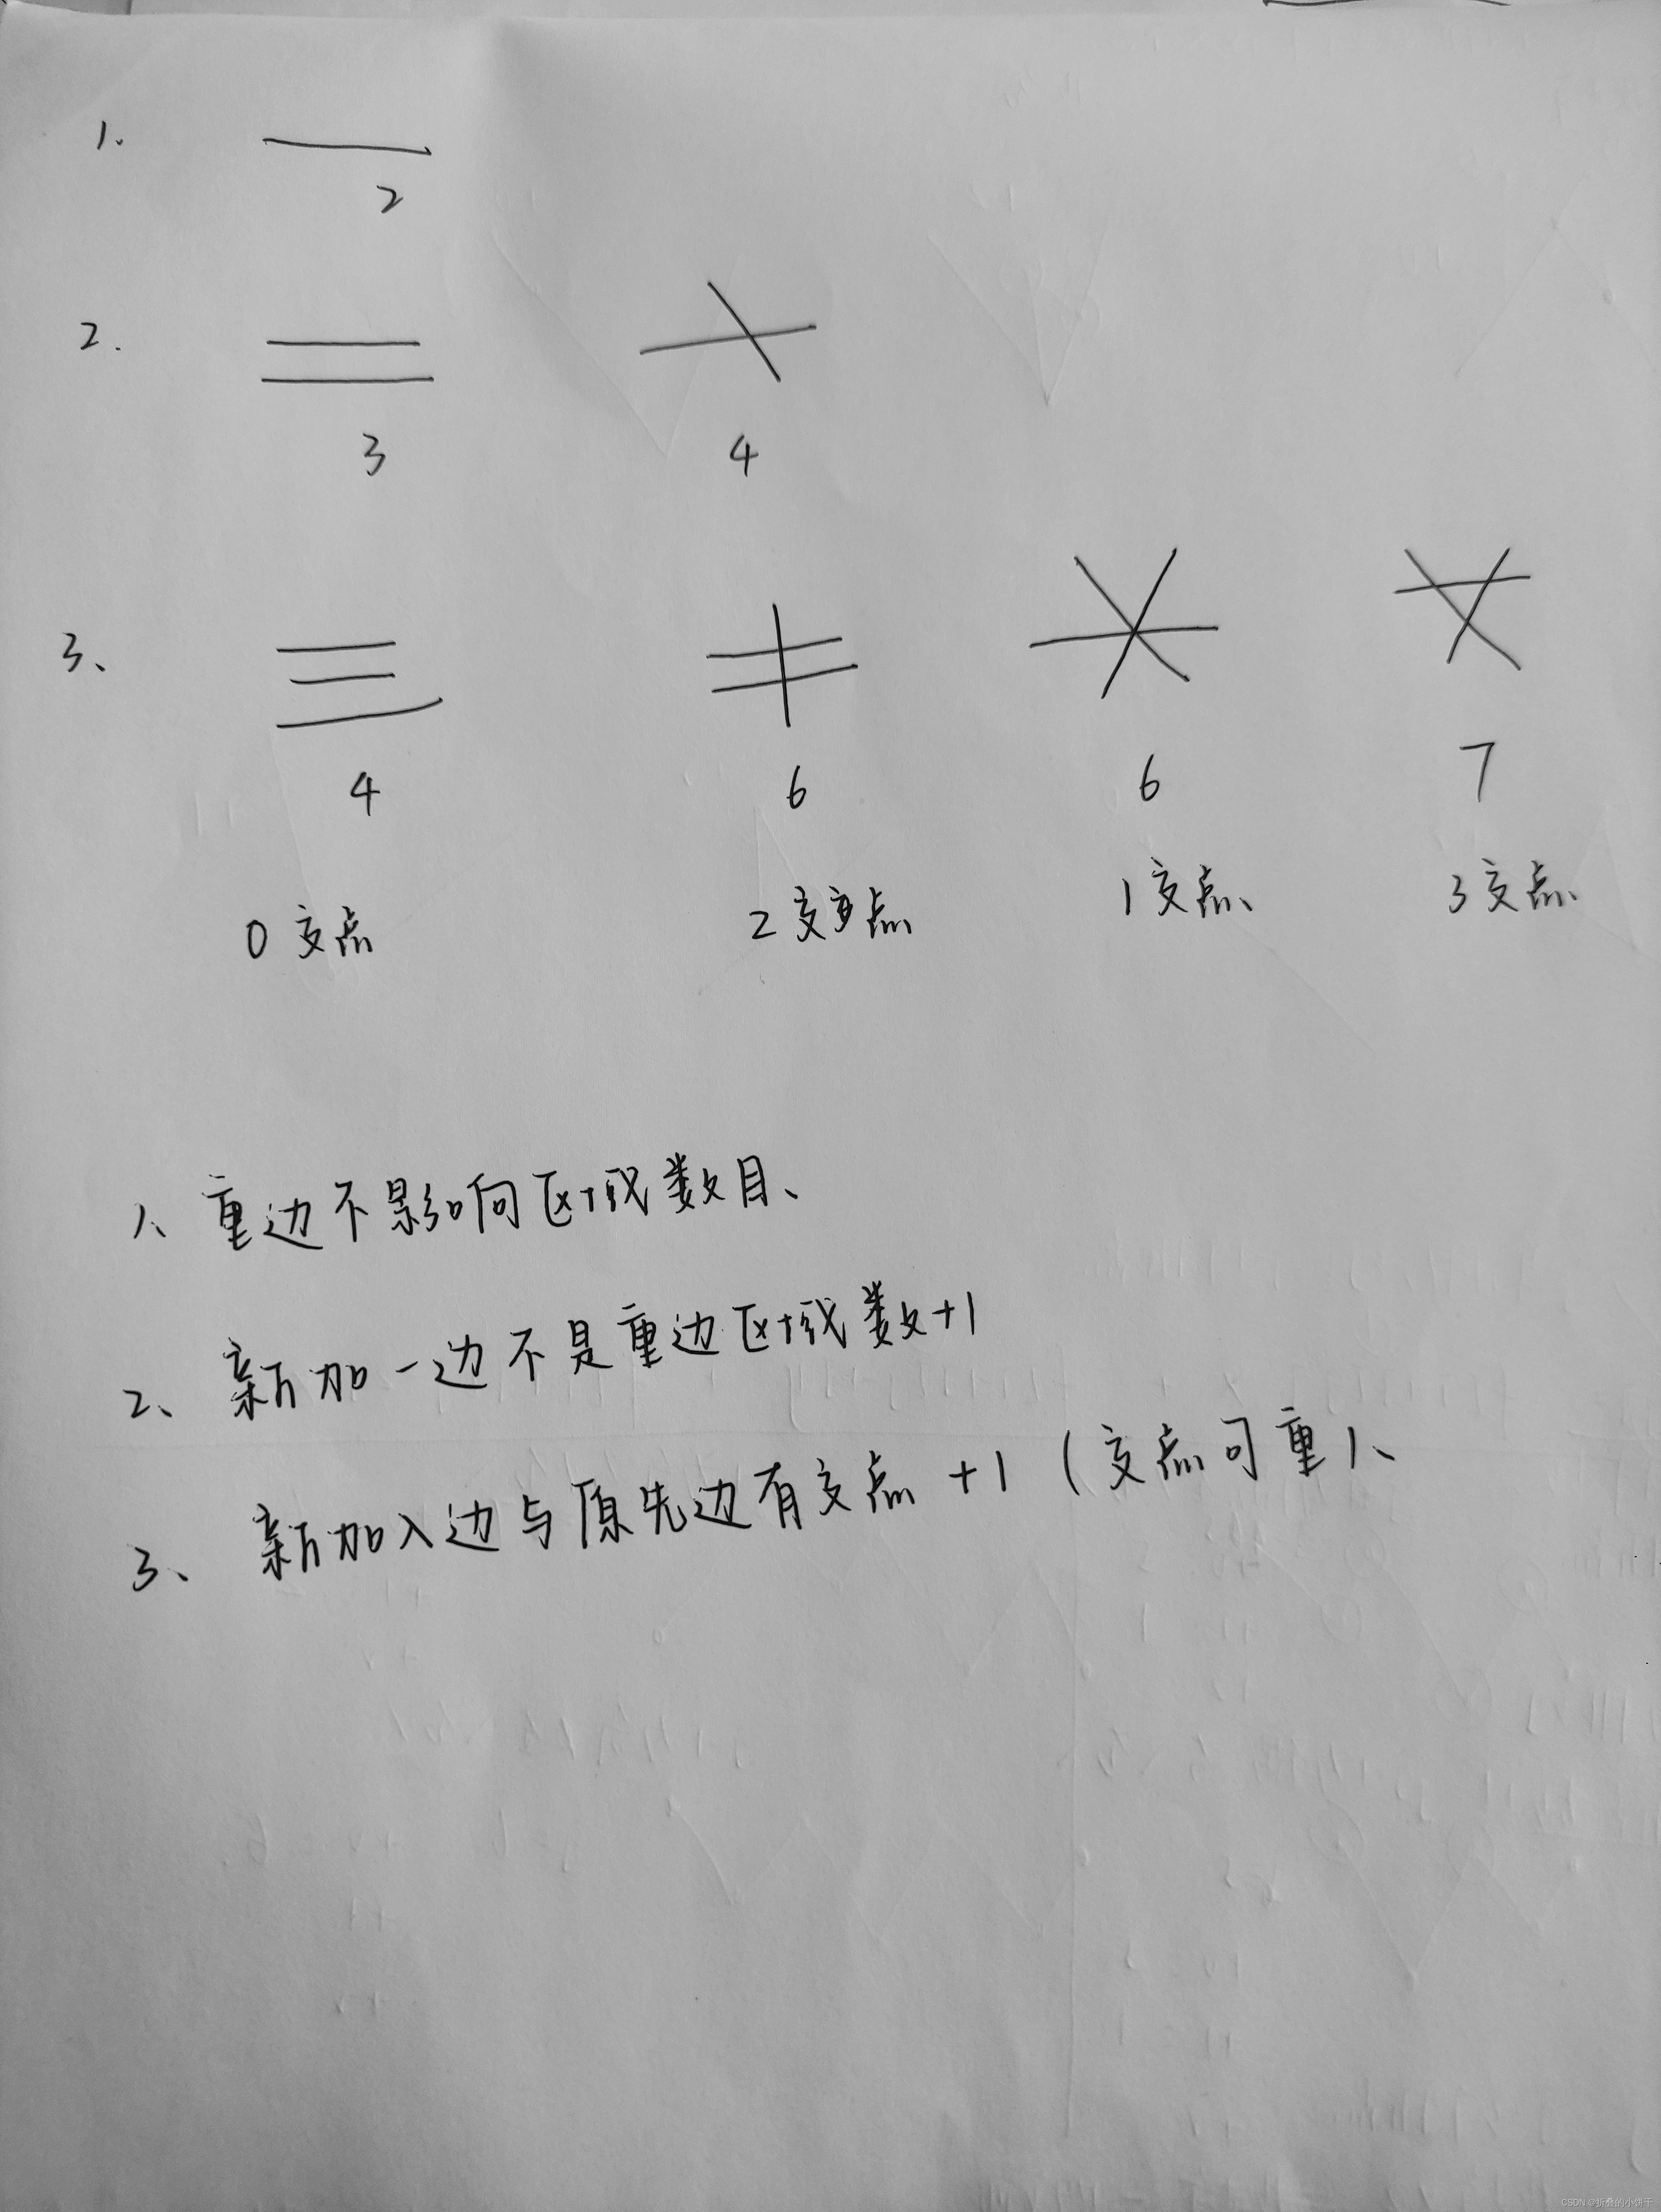 1.
2
2.
3 4
3、
4 6 6 7
0交点 2交点 1交点、 3交点、
1、重边不影响区域数目、
2、新加一边不是重边区域数+1
3、新加入边与原先边有交点+1(交点可重)、
CSDN @折叠的小饼干